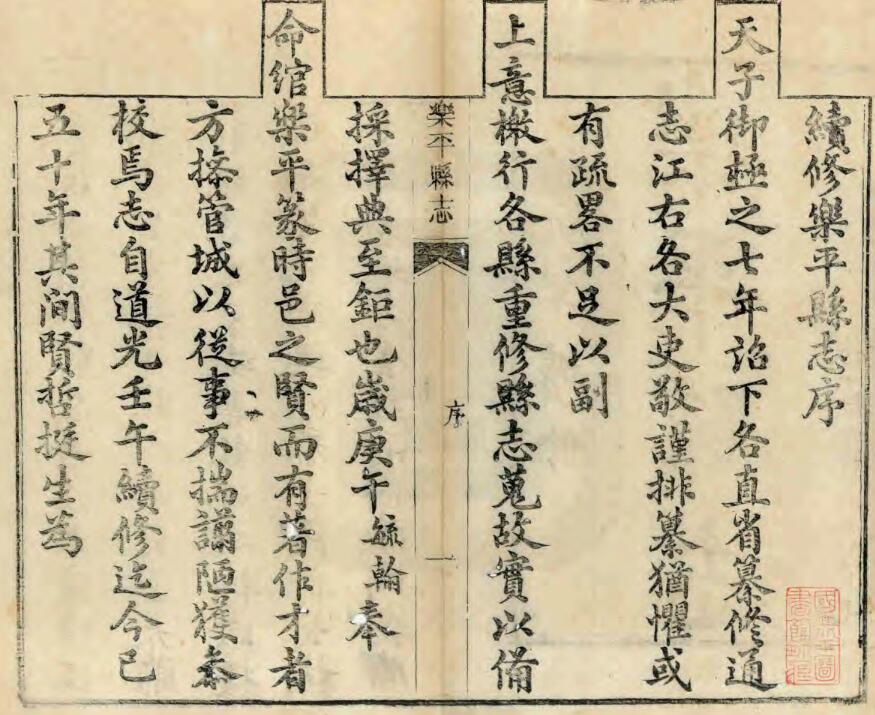 續修樂平縣志序
天子御極之七年詔下各直省纂修通
志江右各大吏敬謹排纂猶懼或
有疏畧不足以副
上意檄行各縣重修縣志蒐故實以備
採擇典至鉅也歲庚午毓翰奉
樂平縣志
序
一
命綰樂平篆時邑之賢而有著作才者
方搦管城以從事不揣譾陋獲叅
校焉志自道光壬午續修迄今已
五十年其间賢哲挺生為